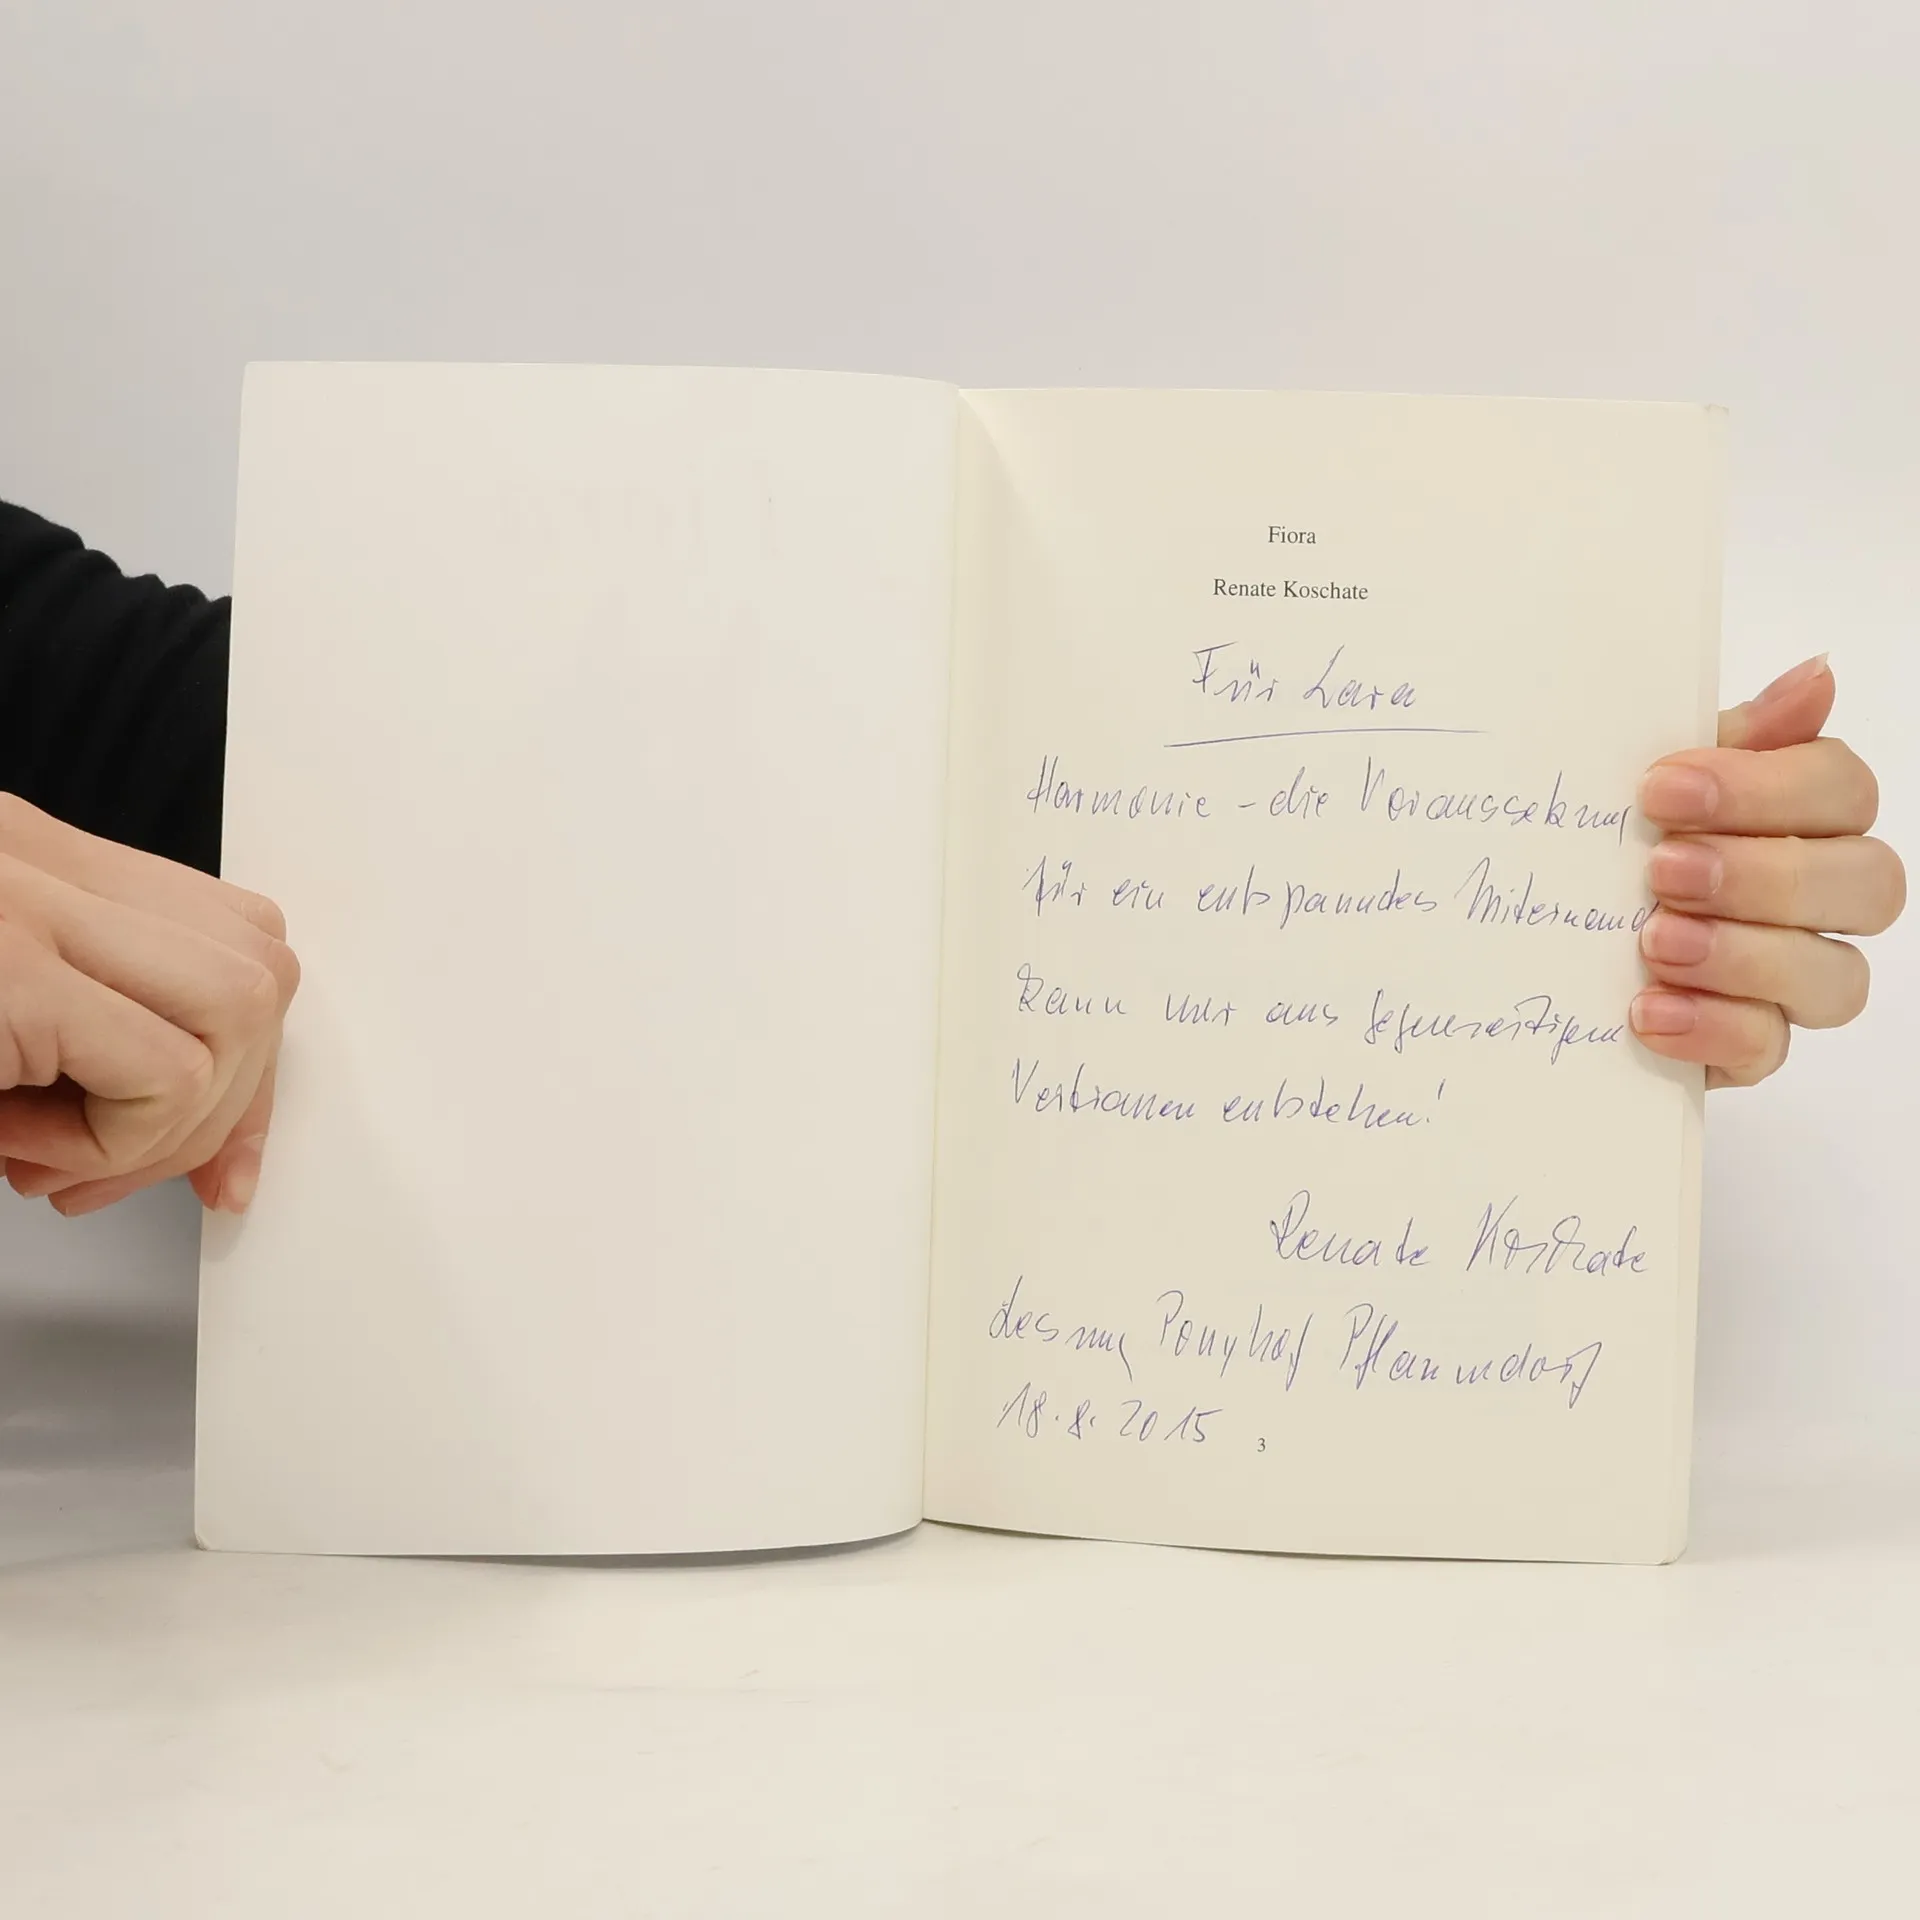 Fiora
Renate Koschate
Für Lara
Harmonie - die Voraussetzung
für ein entspanntes Miteinand
kann nur aus gegenseitigem
Vertrauen entstehen!
Renate Koschate
Lesung Ponyhof Pflaumdorf
18.8.2015
3